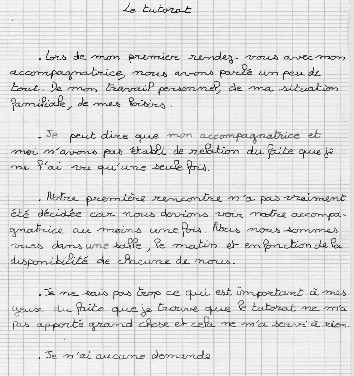 Le tutorat
. Lors de mon premier rendez-vous avec mon
accompagnatrice, nous avons parlé un peu de
tout. De mon travail personnel, de ma situation
familiale, de mes loisirs.
. Je peut dire que mon accompagnatrice et
moi n'avons pas établi de relation du faite que je
ne l'ai vu qu'une seule fois.
. Notre première rencontre n'a pas vraiment
été décidée car nous devions voir notre accompa-
gnatrice au moins une fois. Nous nous sommes
vues dans une salle, le matin et en fonction de la
disponibilité de chacune de nous.
. Je ne sais pas trop ce qui est important à mes
yeux du faite que je trouve que le tutorat ne m'a
pas apporté grand chose et cela ne m'a servi à rien.
. Je n'ai aucune demande